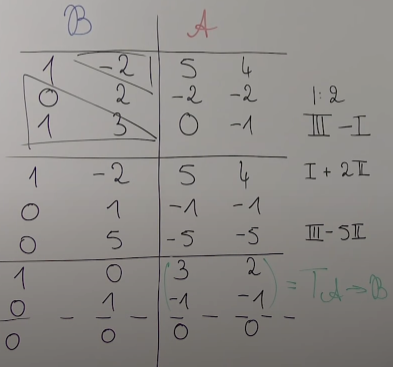 𝔹 A
1 -2 5 4
0 2 -2 -2 |:2
1 3 0 -1 III - I
1 -2 5 4 I + 2II
0 1 -1 -1
0 5 -5 -5 III - 5II
1 0 (3 2)
0 1 (-1 -1) = T A→𝔹
0 0 0 0